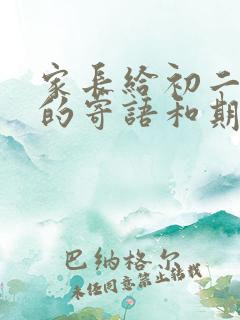 家长给初二
的寄語和期
巴纳格尔
未经同意禁止转载